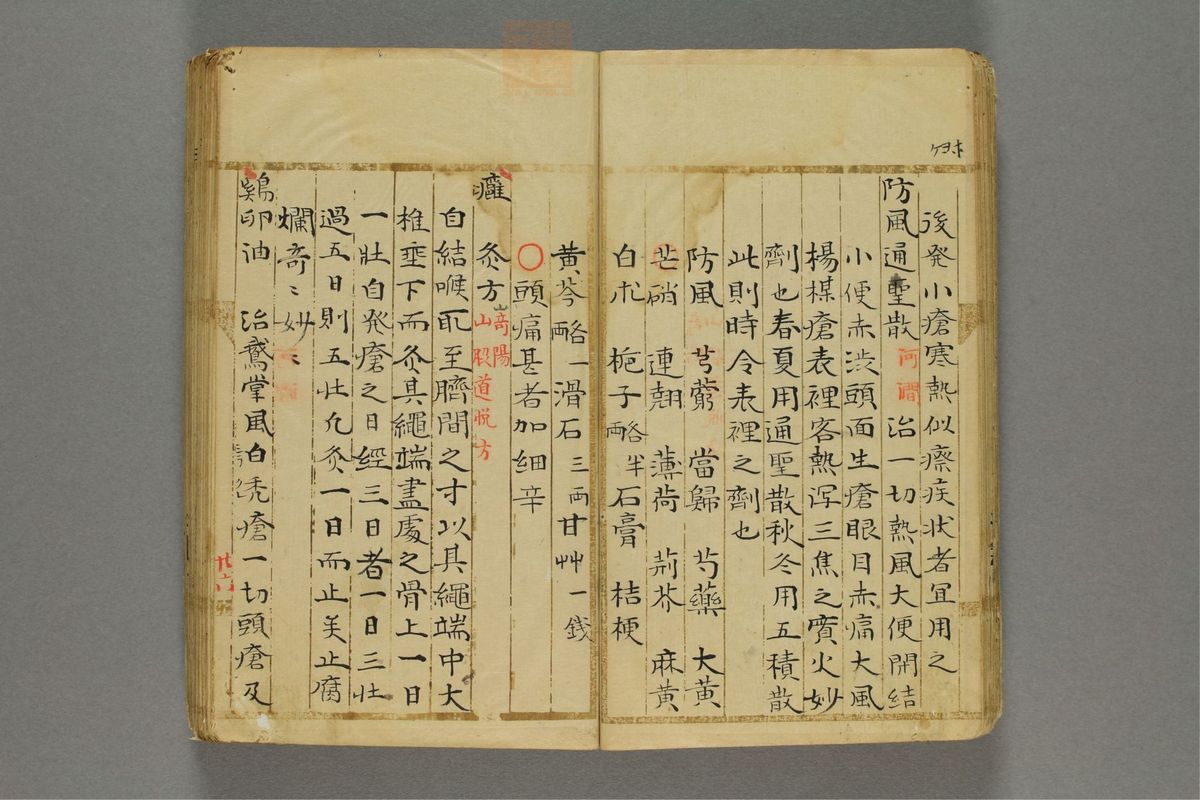 後発小瘡寒熱似瘵疾状者冝用之
防風通聖散 河澗 治一切熱風大便閉結
小便赤渋頭面生瘡眼目赤痛大風
楊楳瘡表裡客熱泻三焦之實火妙
劑也春夏用通聖散秋冬用五積散
此則時令表裡之劑也
防風 芎藭 當歸 芍藥 大黄
芒硝 連翹 薄荷 荊芥 麻黄
白朮 梔子略半石膏 桔梗
黄芩略一滑石三両甘艸一銭
○頭痛甚者加細辛
癰 灸方
山叚道悦方
自結喉取至臍間之寸以其繩端中大
椎垂下而灸其繩端盡處之骨上一日
一壮自発瘡之日経三日者一日三壮
過五日則五壮允灸一日而止矣止腐
爛奇〻妙〻
鷄卵油 治鵞掌風白禿瘡一切頭瘡及
廿六